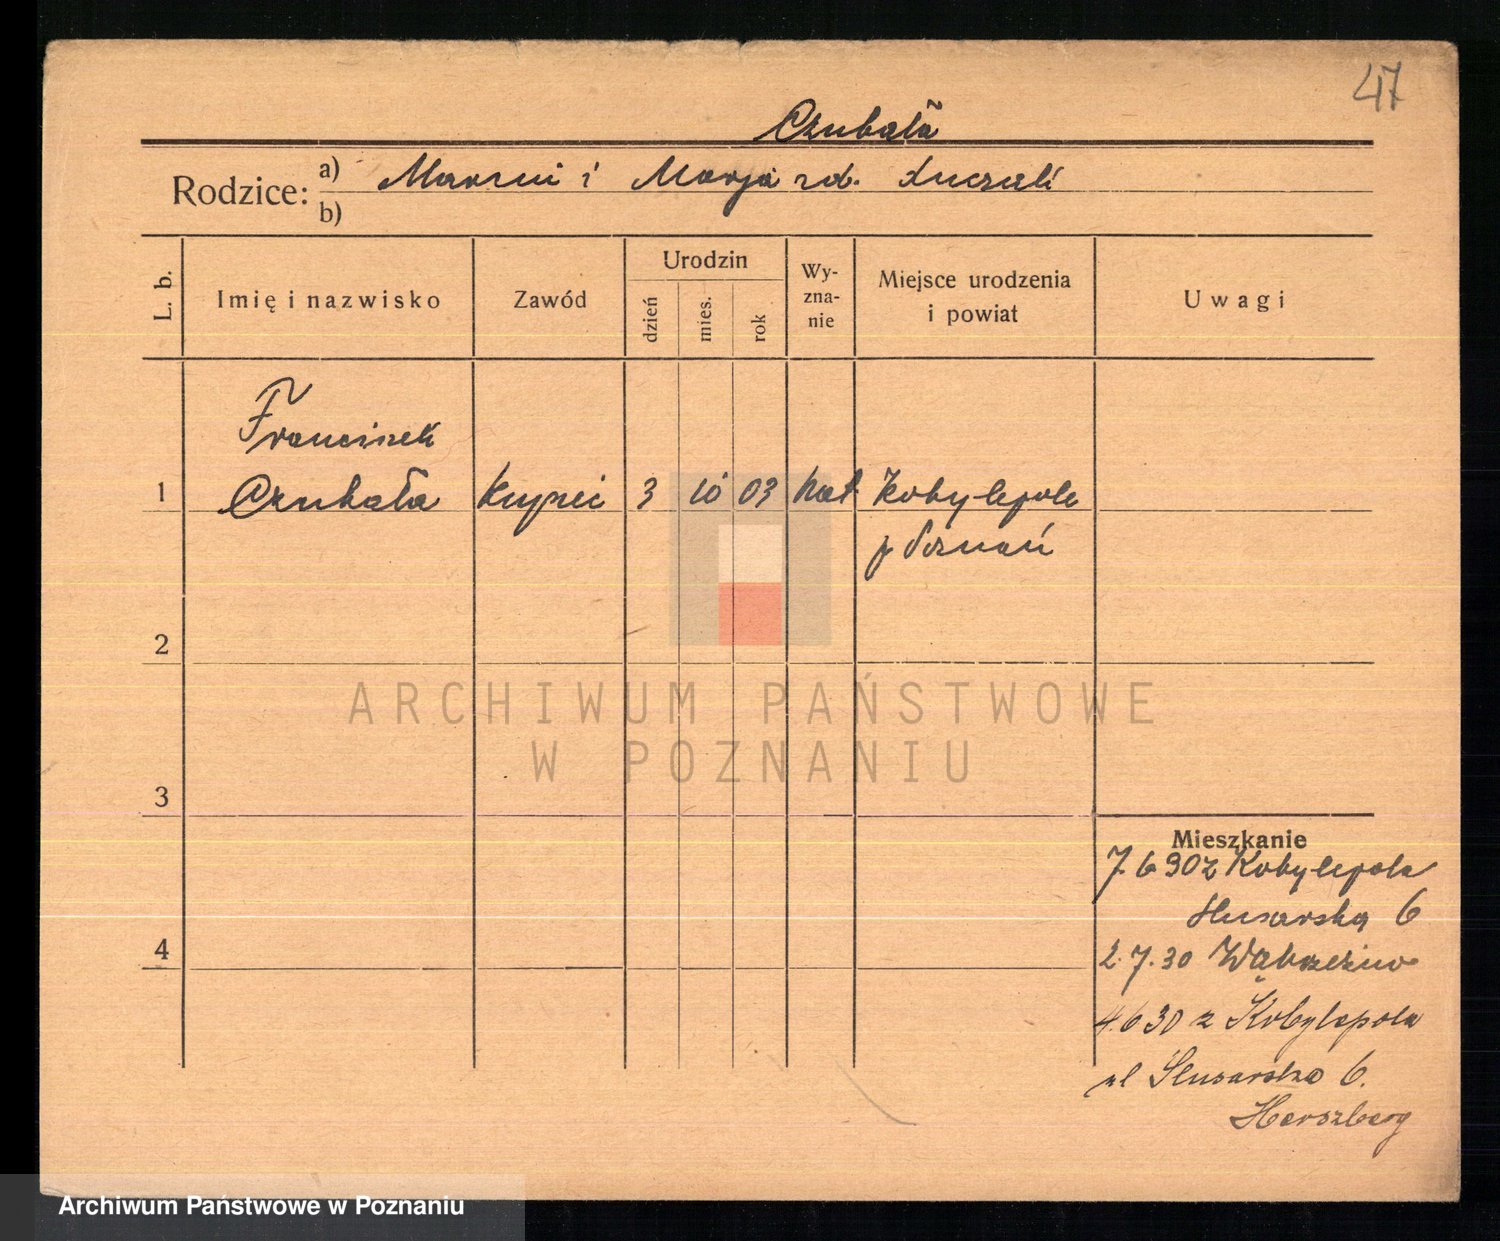 47
Czubała
Rodzice: a) Marcin i Marja zd.
b)
L. b.
Imię i nazwisko
Zawód
Urodzin
dzień
mies.
rok
Wy-
zna-
nie
Miejsce urodzenia
i powiat
Uwagi
Franciszek
1 Czubała kupiec 3 10 03 kat. Kobylepole
p Poznań
2
3
4
Mieszkanie
7.6 30 z Kobylepola
Ślusarska 6
2.7.30 Wąbrzeźno
4.6 30 z Kobylepola
ul Ślusarska 6.
Herszberg
ARCHIWUM PAŃSTWOWE
W POZNANIU
Archiwum Państwowe w Poznaniu